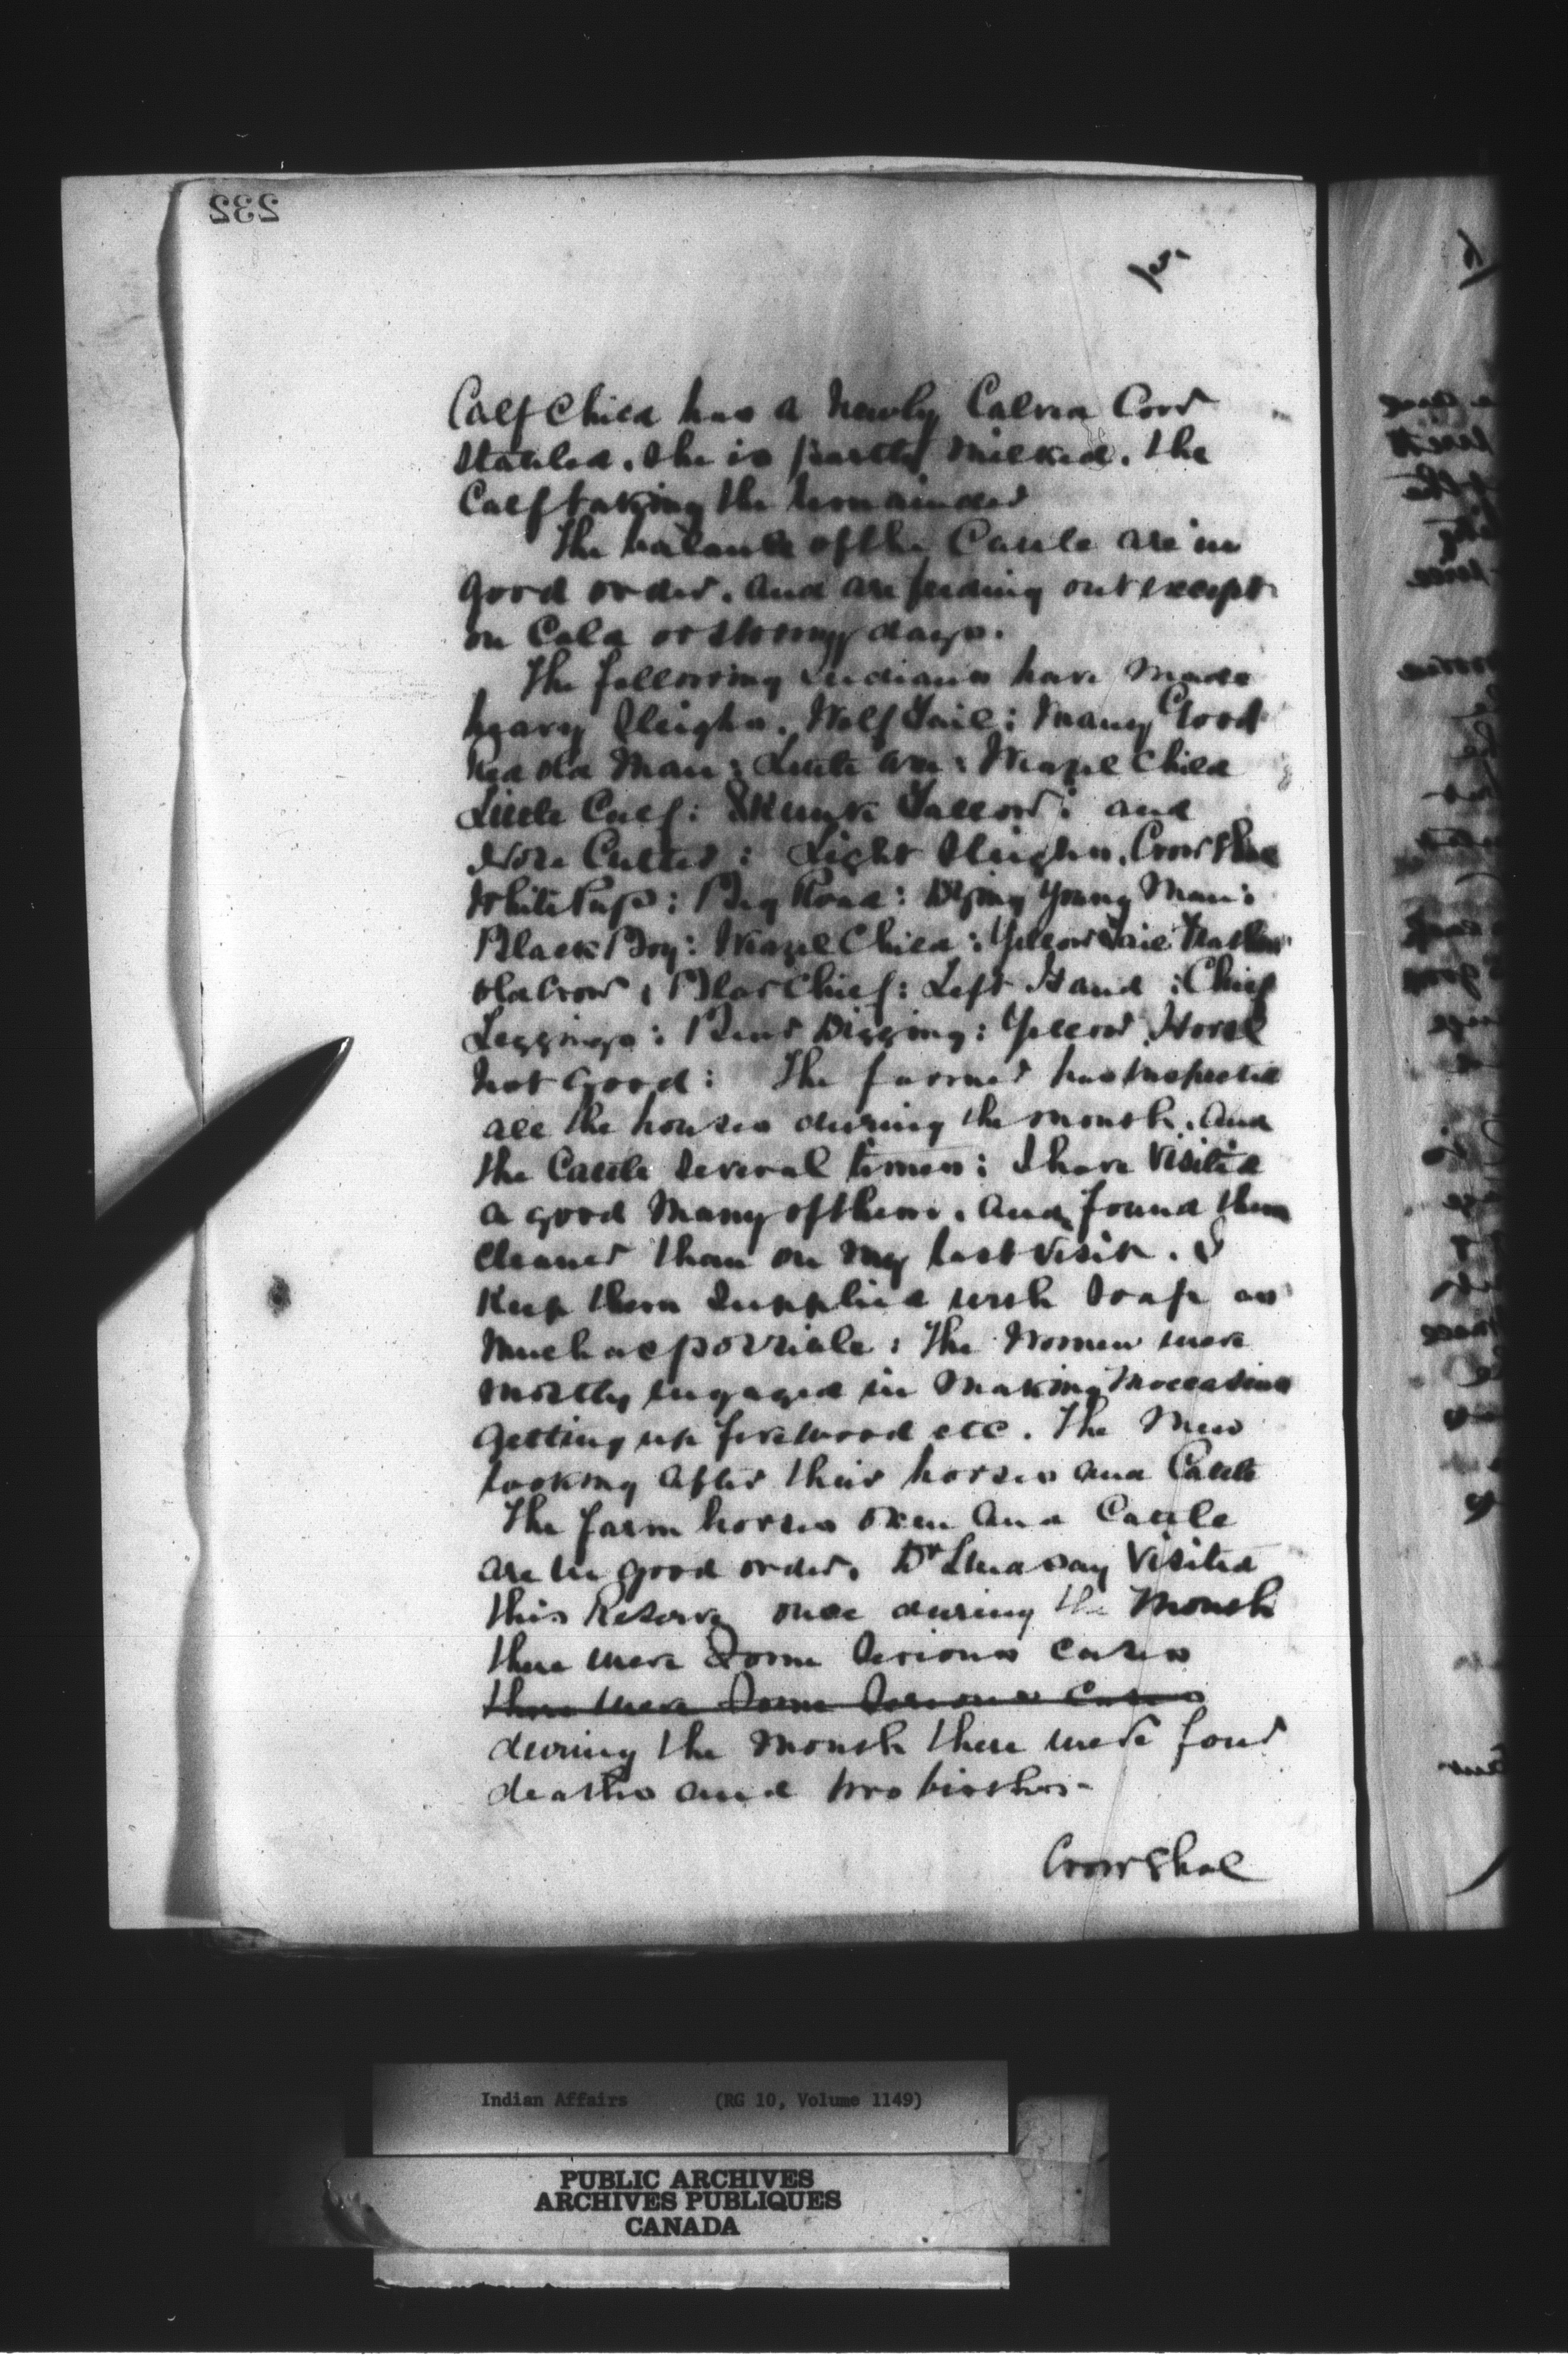 232
5.
Calf Child has a newly Calved Cow
Stabled. She is partly milked. the
Calf taking the remainder
The balance of the Cattle are in
good order. and are feeding out except
on Cold or Stormy days.
The following Indians have made
heavy Sleighs. Wolf Tail: Many Good
Red Old Man: Little Axe: Weazel Child
Little Calf: Skunk Tallow: and
Nose Cutter: Light Sleighs. Crow Shoe
White Pup: Big Road: Dying Young Man:
Black Boy: Weazel Child: Yellow Tail Feathers
Old Crow, Blar Chief: Left Hand: Chief
Leggings: Bear Digging: Yellow Horse
Not Good: The farmer has inspected
all the houses during the month. and
the Cattle Several times: I have Visited
a good Many of them. and found them
cleaner than on my last visit. I
Keep them Supplied with Soap as
Much as possible: The Women were
mostly engaged in Making Moccasins
getting up firewood etc. The Men
looking after their horses and Cattle
The farm horses Oxen and Cattle
are in good order. Dr Lindsay Visited
this Reserve once during the Month
there were Some Serious cases
there were Some Serious Cases
during the Month there were four
deaths and two births-
Crow Shoe
Indian Affairs (RG 10, Volume 1149)
PUBLIC ARCHIVES
ARCHIVES PUBLIQUES
CANADA